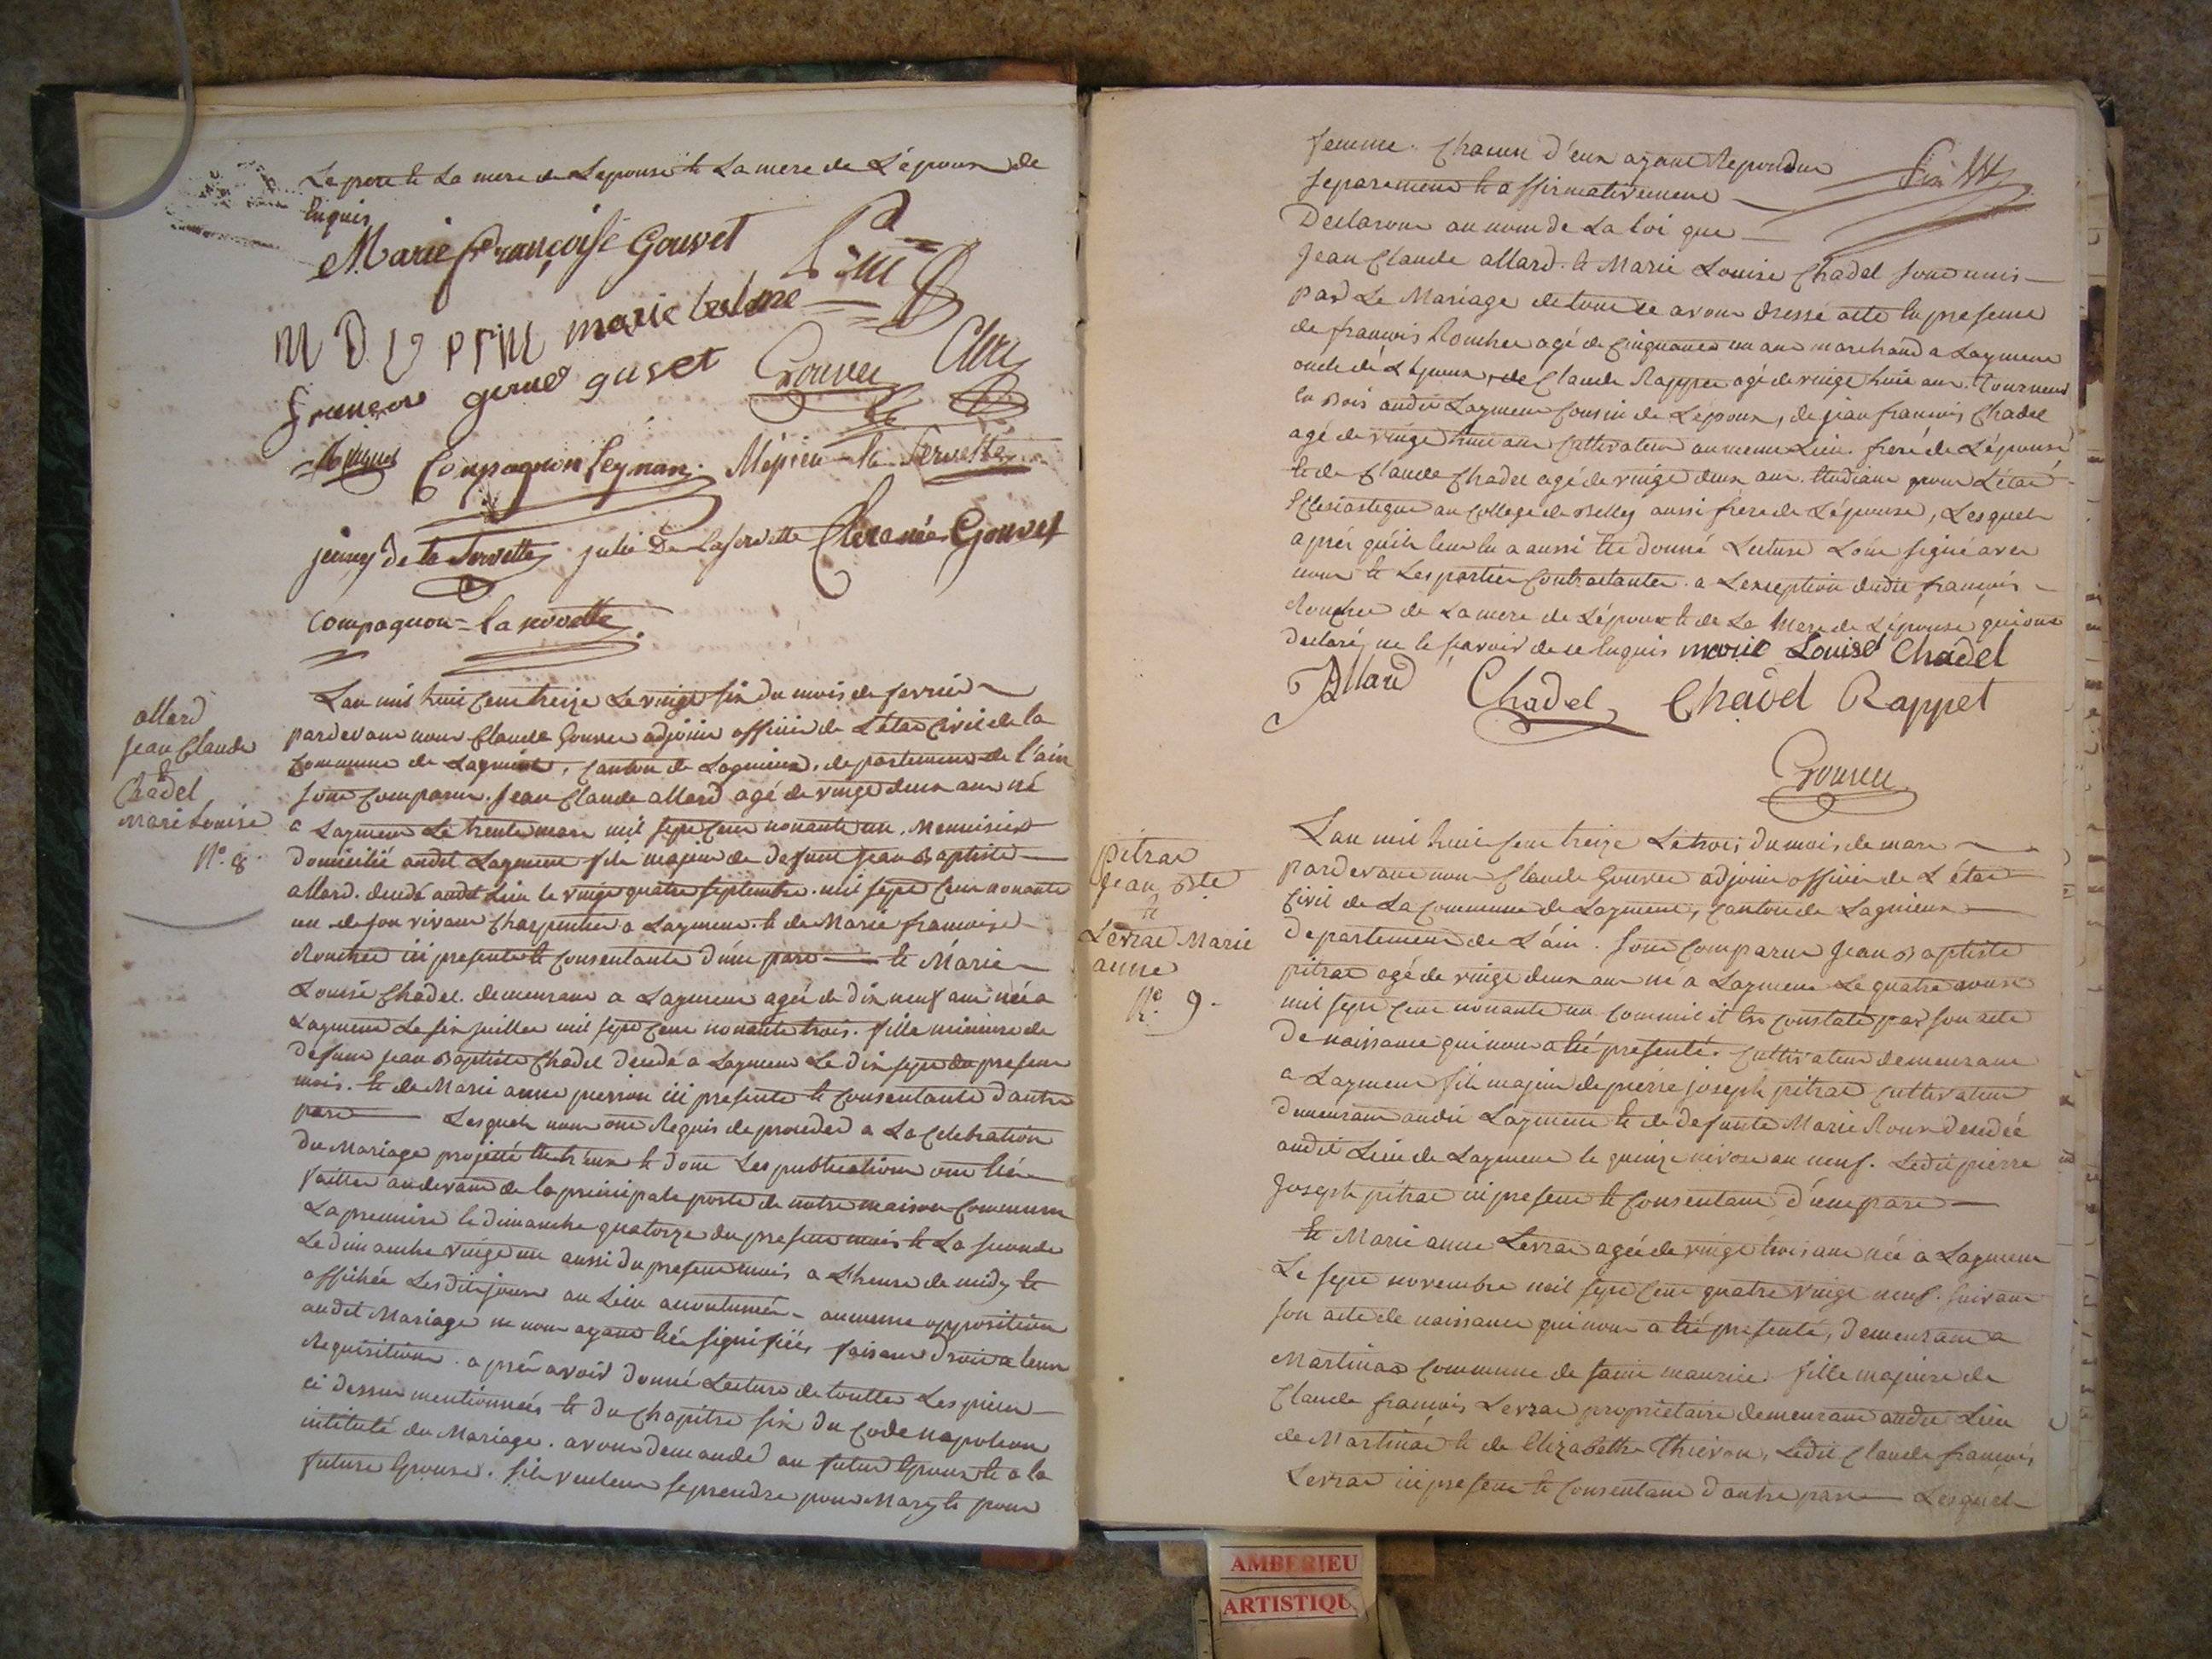 Le pere et La mere de Lepouse et La mere de L'époux de
Enquis
Marie Françoise Gouvet
marie
françois
Gouvet Clerc
Compagnon Leynan. Mépieu la Servette
jenny de la Servette julie De Laservette Clerc née Gouvet
Compagnon-Laservette
allard
jean Claude
&
Chadel
Marie Louise
N.º 8
Lan mil huit Cent treize Le vingt six du mois de fevrier
pardevant nous Claude Gouvet adjoint officier de L'état Civil de la
Commune de Lagnieu, Canton de Lagnieu, departement de l'ain
sont Comparus. Jean Claude allard agé de vingt deux ans né
a Lagnieu Le trente mars mil sept Cent nonante un. Menuisier
domicilié audit Lagnieu fils majeur de defunt Jean Baptiste
allard. decédé audit Lieu le vingt quatre septembre. mil sept Cent nonante
un de son vivant Charpentier a Lagnieu. et de Marie francoise
Rouchet ici presente et Consentante d'une part et Marie
Louise Chadel. demeurant a Lagnieu agée de dix neuf ans née a
Lagnieu Le six juillet mil sept Cent nonante trois. fille mineure de
defunt jean Baptiste Chadel decedé a Lagnieu Le dix sept du present
mois. et de Marie anne perrion ici presente et Consentante d'autre
part Lesquels nous ont Requis de proceder a La Celebration
du Mariage projetté entr'eux et dont Les publications ont été
faittes au devant de la principale porte de notre maison Commune
La premiere le dimanche quatorze du present mois et La seconde
Le dimanche vingt un aussi du present mois a L'heure de midy et
affichée Lesdits jours au Lieu accoutumés aucune opposition
audit Mariage ne nous ayant été signifiée, faisant droit a leur
Requisition. aprés avoir donné Lecture de touttes Les pieces
ci dessus mentionnées et du Chapitre six du Code napoleon
intitulé du Mariage. avons demandé au futur Epoux et a la
future Epouse. s'ils veulent se prendre pour Mary et pour
femme. Chacun d'eux ayant Repondu
separement et affirmativement
Declarons au nom de La Loi que
Jean Claude allard. et Marie Louise Chadel sont unis
par Le Mariage de tout ce avons dressé acte En presence
de francois Rouchet agé de Cinquante un ans marchand a Lagnieu
oncle de L'Epoux, de Claude Rappet agé de vingt huit ans. tourneur
En Bois audit Lagnieu Cousin de Lépoux, de jean francois Chadel
agé de vingt huit ans Cultivateur au meme Lieu. frere de L'épouse
et de Claude Chadel agé de vingt deux ans. Etudiant pour L'état
Eclesiastique au College de Belley aussi frere de L'épouse, Lesquels
aprés qu'il leur En a aussi été donné Lecture L'ont signé avec
nous et Les parties Contractantes. a L'exception dudit francois
Rouchet de La mere de L'époux et de La Mere de L'épouse qui ont
declaré, ne le savoir de ce Enquis marie Louise Chadel
Allard Chadel Chadel Rappet
Gouvet
pitrat
Jean Bte
et
Levrat Marie
anne
N.º 9.
Lan mil huit Cent treize Le trois du mois de mars
pardevant nous Claude Gouvet adjoint officier de L'état
Civil de La Commune de Lagnieu, Canton de Lagnieu
departement de L'ain. sont Comparus Jean Baptiste
pitrat agé de vingt deux ans né a Lagnieu Le quatre
mil sept Cent nonante un Comme il Est constaté par son acte
de naissance qui nous a été presenté. Cultivateur demeurant
a Lagnieu fils majeur de pierre joseph pitrat Cultivateur
demeurant audit Lagnieu et de defunte Marie Roux decedée
audit Lieu de Lagnieu le quinze nivose an neuf. Ledit pierre
Joseph pitrat ici present et Consentant d'une part
et Marie anne Levrat agée de vingt trois ans née a Lagnieu
Le sept novembre mil sept Cent quatre vingt neuf. suivant
son acte de naissance qui nous a été presenté, demeurant a
Martinas Commune de saint maurice fille majeure de
Claude francois Levrat proprietaire demeurant audit Lieu
de Martinas et de Elizabeth Thievon, Ledit Claude francois
Levrat ici present et Consentant d'autre part Lesquels
AMBERIEU
ARTISTIQU